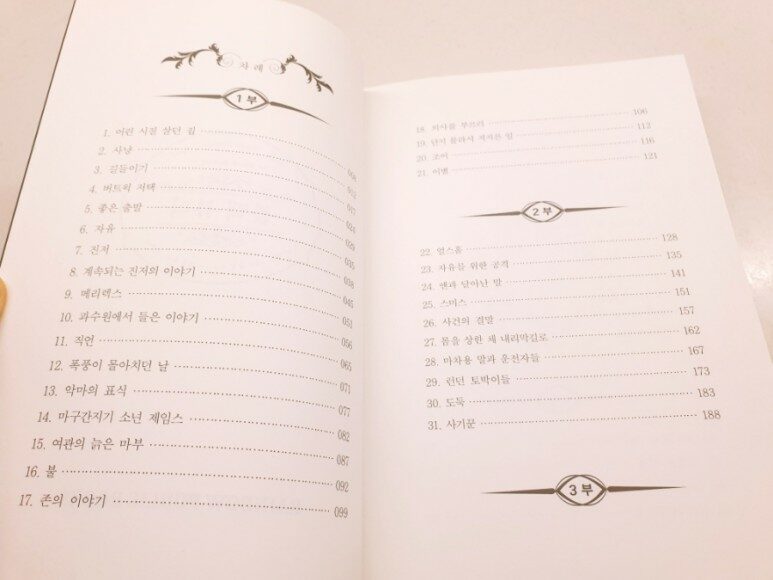 차 례
1부
1. 어린 시절 살던 집 008
2. 사냥 012
3. 길들이기 017
4. 버트윅 저택 024
5. 좋은 출발 029
6. 자유 035
7. 진저 038
8. 계속되는 진저의 이야기 045
9. 메리렉스 051
10. 과수원에서 들은 이야기 056
11. 직언 065
12. 폭풍이 몰아치던 날 071
13. 악마의 표식 077
14. 마구간지기 소년 제임스 082
15. 여관의 늙은 마부 087
16. 불 092
17. 존의 이야기 099
18. 의사를 부르러 106
19. 단지 몰라서 저지른 일 112
20. 조이 116
21. 이별 121
2부
22. 얼스홀 128
23. 자유를 위한 공격 135
24. 앤과 달아난 말 141
25. 스미스 151
26. 사건의 결말 157
27. 몸을 상한 채 내리막길로 162
28. 마차용 말과 운전자들 167
29. 런던 토박이들 173
30. 도둑 183
31. 사기꾼 188
3부